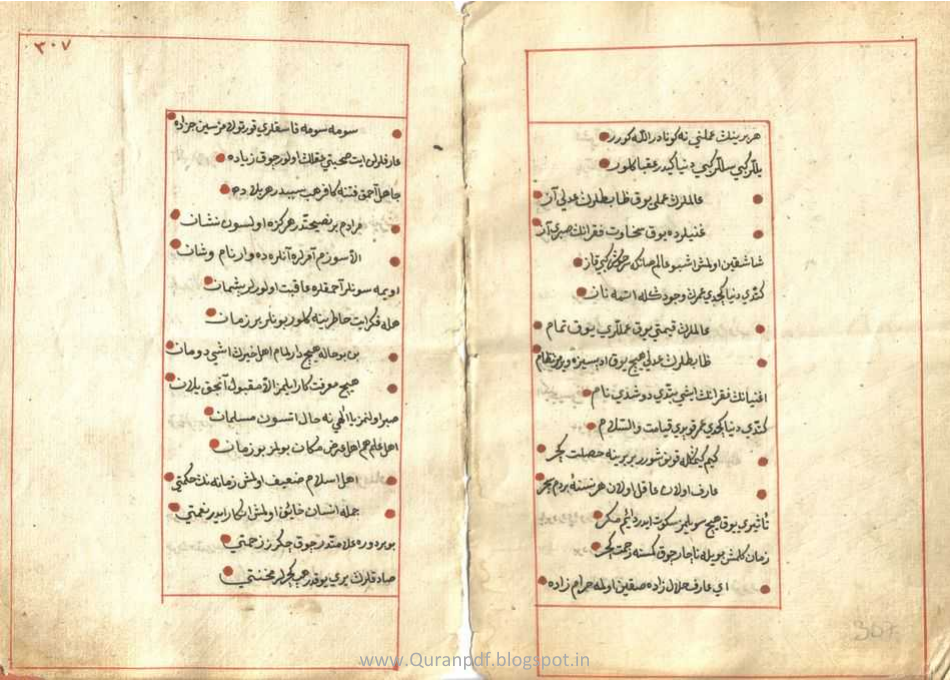 هر برينك عملنى نه كونادر الله كورر
يللر كبي سللر كبي دنيا كيدر عقبا كلور
عالملرك عملى يوق ظابطلرك عدلى آز
غنيلرده يوق سخاوت فقرانك صبرى آز
شاشقين اولمش اشبو عالم صانكى سرخوش كبي قاز
كتدى دنيا كچدى عمرك وجودكله اتمه ناز
عالملرك قيمتى يوق عمللرى يوق تمام
ظابطلرك عدلى هيچ يوق نظام
اغنيانك فقرانك ايشى بتدى دوشدى نام
كتدى دنيا كچدى عمر قوپدى قيامت والسلام
كيم كيمكله قونوشورر بربرينه خصلت كچر
عارف اولان عاقل اولان هر نسنه بردم كچر
تأثيرى يوق هيچ سويلمز سكوت ايدر دائم مكر
زمان كلمش بويله ناچار چوق كسنه زحمت كچر
اي عارف حلال زاده صقين اولمه حرام زاده
٣٠٧
سومه سومه فاسقلرى قورتولمزسين جزاده
عارفلرله ايت صحبتى عقلك اولور چوق زياده
جاهل احمق فتنه كافر هپ سببدر هر بلاده
مرادم بر نصيحتدر هر كزه اولسون نشان
الا سوزم آفرلره آنلرده وار نام وشان
اويمه سونلر آحمقلره عاقبت اولورلر پشمان
هله فكر ايت خاطرينه كلور بونلر بر زمان
بن بو حاله هيچ دارلمام اهل خيرك اشي دومان
هيچ معرفت كار ايلمز الا مقبول آنجق يلان
صبر اولنمز يا الهى نه حال اتسون مسلمان
اهل علم هم اهل عرض مكان بولمز بو زمان
اهل اسلام ضعيف اولمش زمانه نك حكمتى
جمله انسان خائن اولمش انكار ايدر نعمتى
بو بر دوره علامتدر چوق چكرز زحمتى
صادقلرك يرى يوقدر هپ چكرلر محنتى
307
www.Quranpdf.blogspot.in